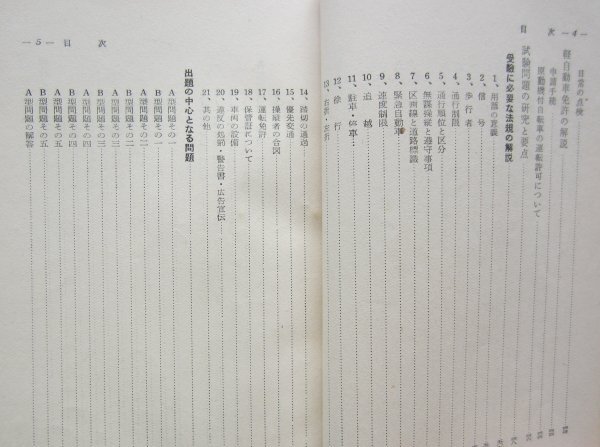 目次 —4—
日常の点検
軽自動車免許の解説
申請手続
原動機付自転車の運転許可について
試験問題の研究と要点
受験に必要な法規の解説
1、用語の意義
2、信号
3、歩行者
4、通行制限
5、通行順位と区分
6、無謀操縦と遵守事項
7、区画線と道路標識
8、緊急自動車
9、速度制限
10、追越
11、駐車・停車
12、徐行
13、右折・左折
14、踏切の通過
15、優先交通
16、操縦者の合図
17、運転免許
18、保管証について
19、車両の設備
20、違反の処罰・警告書・広告宣伝
21、其の他
出題の中心となる問題
A型問題その一
B型問題その一
A型問題その二
B型問題その二
A型問題その三
B型問題その三
A型問題その四
B型問題その四
A型問題その五
B型問題その五
A型問題の解答
—5— 目次